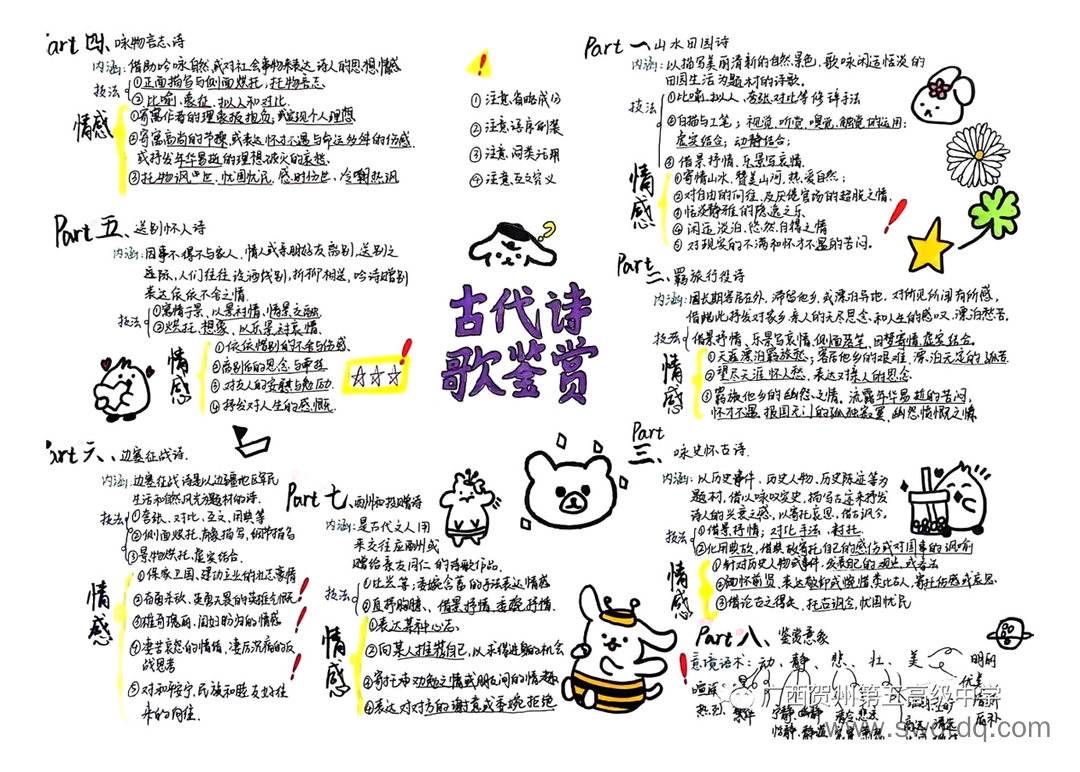 Part 一、山水田园诗
内涵:以描写美丽清新的自然景色,歌咏闲适恬淡的
田园生活为题材的诗歌。
技法
①比喻、拟人、夸张、对比等修辞手法
②白描与工笔;视觉、听觉、嗅觉、触觉的运用;
虚实结合;动静结合;
③借景抒情、乐景写哀情.
情感
①寄情山水、赞美山河、热爱自然;
②对自由的向往,及厌倦官场的超脱之情.
③恬淡静雅的隐逸之乐
④闲适淡泊、悠然自得之情
⑤对现实的不满和怀才不遇的苦闷。
Part 二、羁旅行役诗
内涵:因长期客居在外,滞留他乡,或漂泊异地,对所见所闻有所感,
借此抒发对家乡亲人的无尽思念,和人生的感叹、漂泊愁苦。
技法
借景抒情、乐景写哀情、侧面落笔、因梦寄情、虚实结合.
情感
①天涯漂泊羁旅愁;客居他乡的艰难,漂泊无定的孤苦
②望尽天涯怀人愁、表达对亲人的思念
③羁旅他乡的幽怨之情,流露年华易逝的苦闷,
怀才不遇、报国无门的孤独寂寞、幽怨愤慨之情
Part 三、咏史怀古诗.
内涵:以历史事件、历史人物、历史陈迹等为
题材,借以咏叹史,描写古迹来抒发
诗人的兴衰之感,以寄托哀思,借古讽今.
技法
①借景抒情;对比手法、衬托.
②化用典故,借典故寄托自己的感伤或对国事的讽喻
情感
①针对历史人物或事件,发表自己的观点或看法
②缅怀前贤,表达敬仰或惋惜类比古人,寄托伤感或哀思
③借论古之得失,托古讽今,忧国忧民
art 四、咏物言志诗
内涵:借助吟咏自然,或对社会事物来表达诗人的思想情感
技法
①正面描写与侧面烘托;托物言志
②比喻、象征、拟人和对比.
情感
①寄寓作者的理想抱负,或实现个人理想
②寄寓高尚的节操,或表达怀才不遇与命运多舛的伤感
或抒发年华易逝的理想破灭的哀愁.
③托物讽世、忧国忧民、感时伤世、冷嘲热讽
!
①注意省略成份
②注意语序倒装
③注意词类活用
④注意互文含义
Part 五、送别怀人诗
内涵:因事不得不与家人、情人或亲朋好友离别,送别之
际,人们往往设酒饯别,折柳相送,吟诗赠别
表达依依不舍之情.
技法
①寓情于景、以景衬情、情景交融
②烘托、想象、以乐景衬哀情.
情感
①依依惜别的不舍与伤感、
②离别后的思念与牵挂
③对友人的安慰与勉励.
④抒发对人生的感慨.
?
古代诗
歌鉴赏
art 六、边塞征战诗.
内涵:边塞征战诗是以边疆地区军民
生活和自然风光为题材的诗.
技法
①夸张、对比、互文、用典等
②侧面烘托、肖像描写、细节描写
③景物烘托、虚实结合.
情感
①保家卫国、建功立业的壮志豪情
②奋勇杀敌、英勇无畏的英雄气慨
③雄奇瑰丽,闺妇盼归的情感
④凄苦哀怨的情绪,凄厉沉痛的反
战思考
⑤对和平安宁、民族和睦友好往
来的向往.
Part 七、酬和投赠诗
内涵:是古代文人用
来交往应酬或
赠给亲友同仁的诗歌作品.
技法
①比兴等;委婉含蓄的手法表达情感
②直抒胸臆、借景抒情、委婉抒情.
情感
①表达某种心志.
②向某人推荐自己,以求得进身的机会
③寄托市功勉之情或朋友间的情意.
④表达对对方的谢意或委婉拒绝
Part 八、鉴赏意象
意境语术: 动、静、悲、壮、美
明丽
优美
热烈.
宁静、幽静
恬静、静谧
广西贺州第五高级中学
www.swdtdq.com